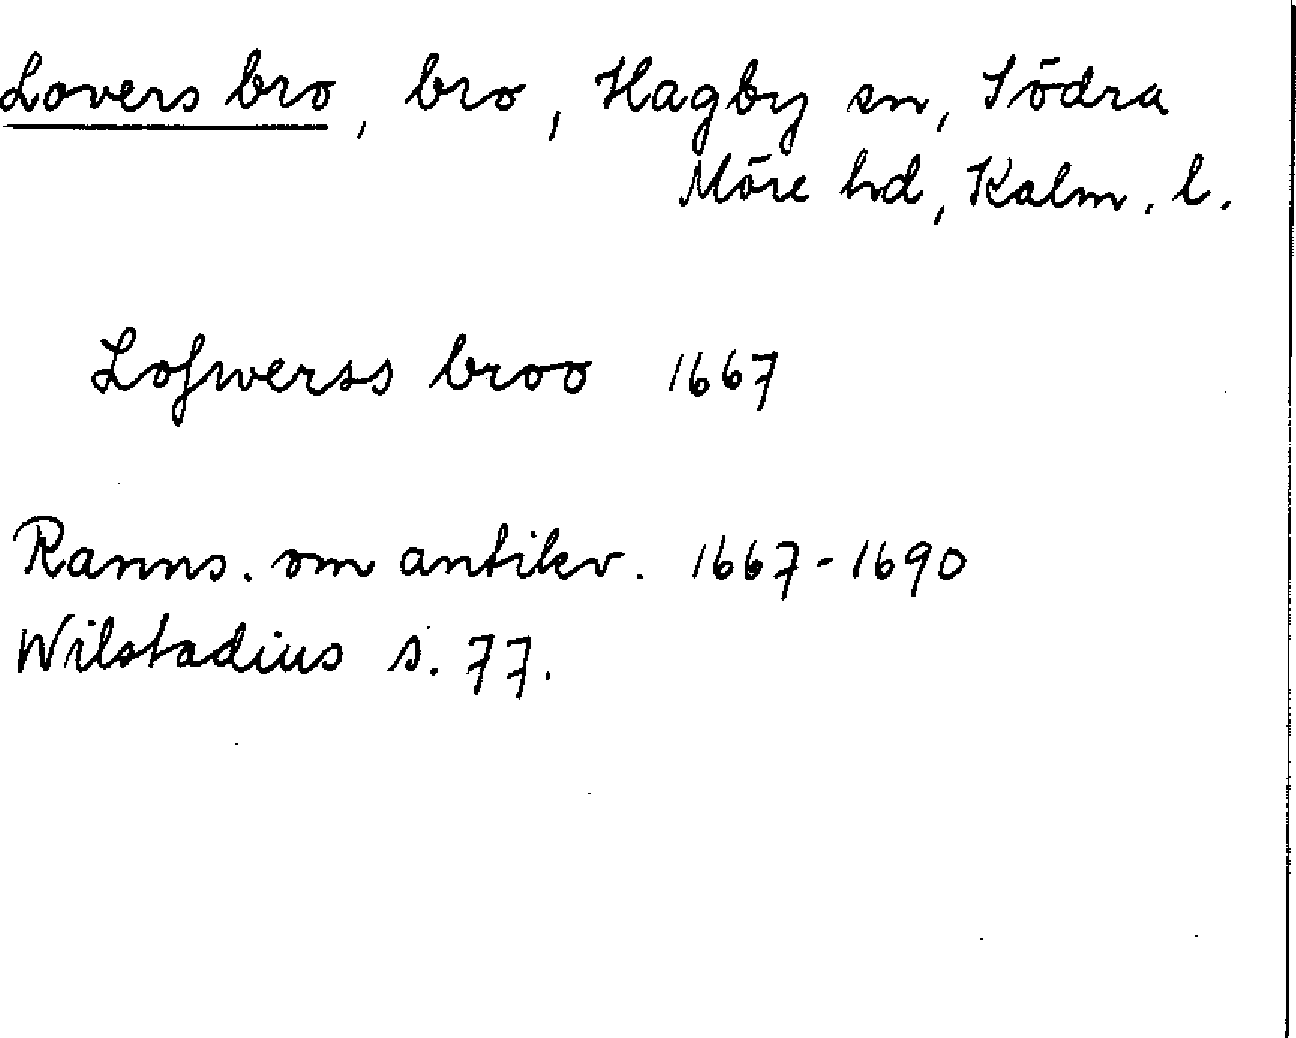 Lovers bro, bro, Hagby sn, Södra
Möre hd, Kalm. l.
Lofwerss broo 1667
Ranns. om antikv. 1667-1690
Wilstadius s. 77.